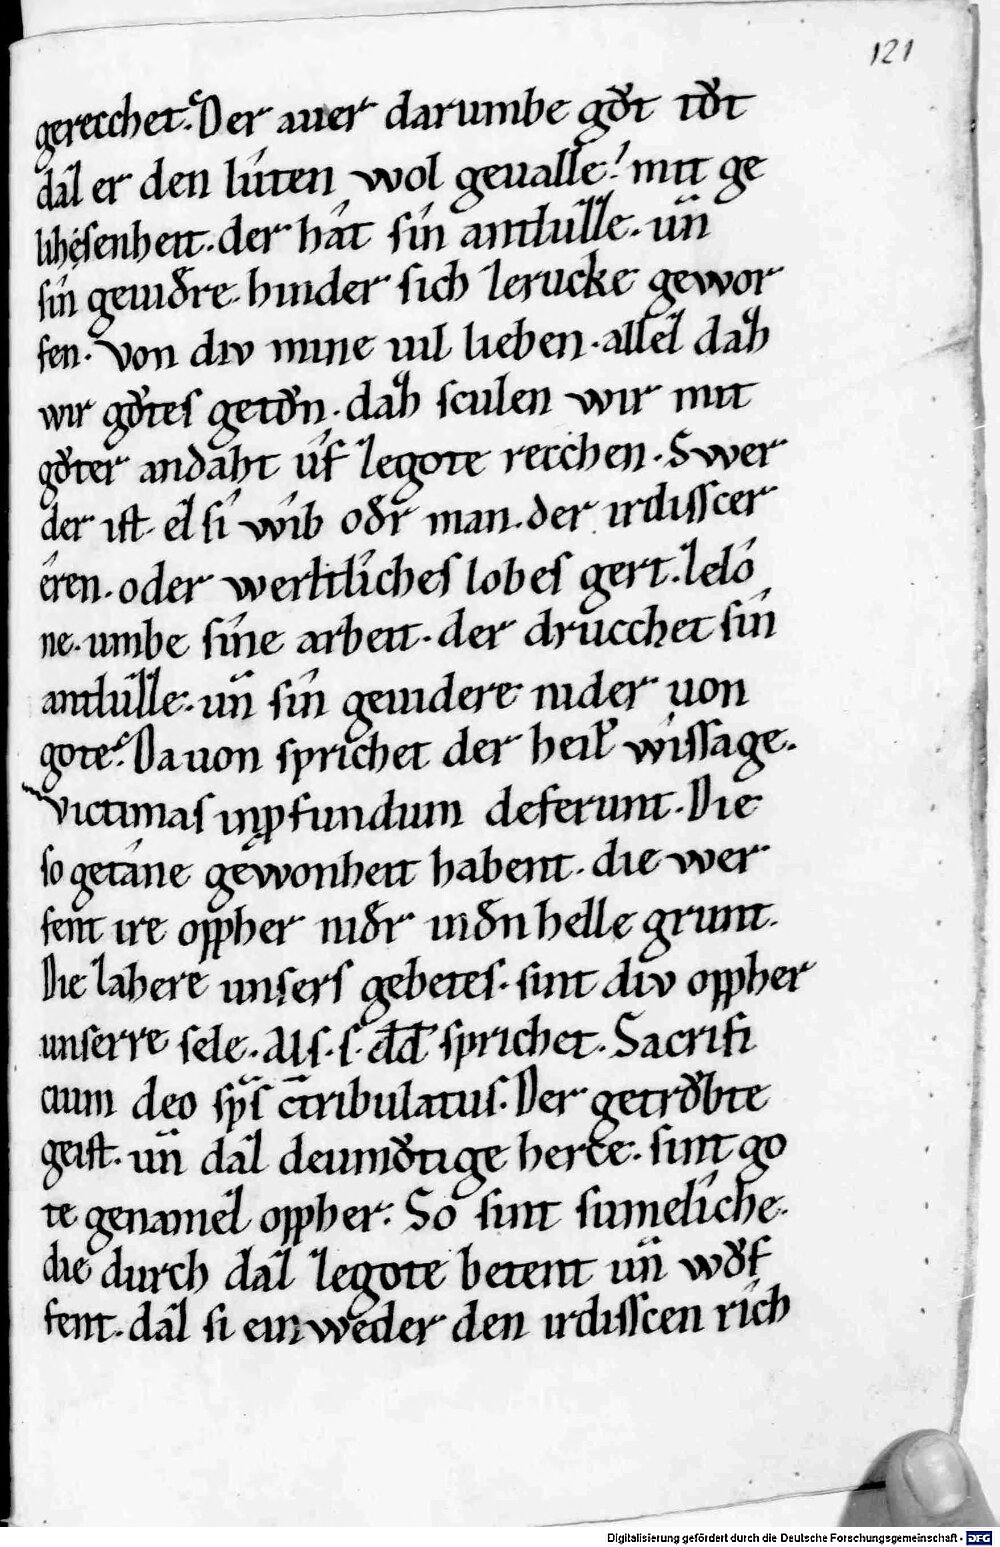 121
gerecchet. Der auer darumbe gůt tůt
daz er den lúten wol geualle. mit ge
lihsenheit. der hât sín antlutze. uñ
sín geuidͤre hinder sich zerucke gewor
fen. Von div mine uil lieben. allez daz
wir gůtes getůn. daz sculen wir mit
gůter andaht ûf zegote recchen. Swer
der ist. ez si wib odͤr man. der irdisscer
êren. oder werltliches lobes gert. zelô
ne. umbe sîne arbeit. der drucchet sín
antlutze. uñ sín geuidere nider uon
gote. Da uon sprichet der heilˀ wissage.
Victimas in ꝓfundum deferunt. Die
so getâne gewonheit habent. die wer
fent ire oppher nidͤr in dͤn helle grunt.
Die zahere unsers gebetes. sint div oppher
unserre sele. Als. s. dd̄ sprichet. Sacrifi
cium deo sp̄s c̄tribulatus. Der getrůbte
geist. uñ daz deumůtige herce. sint go
te genamez oppher. So sint sumelîche.
die durch daz zegote betent uñ wůf
fent. daz si ein weder den irdisscen rîch
Digitalisierung gefördert durch die Deutsche Forschungsgemeinschaft - DFG